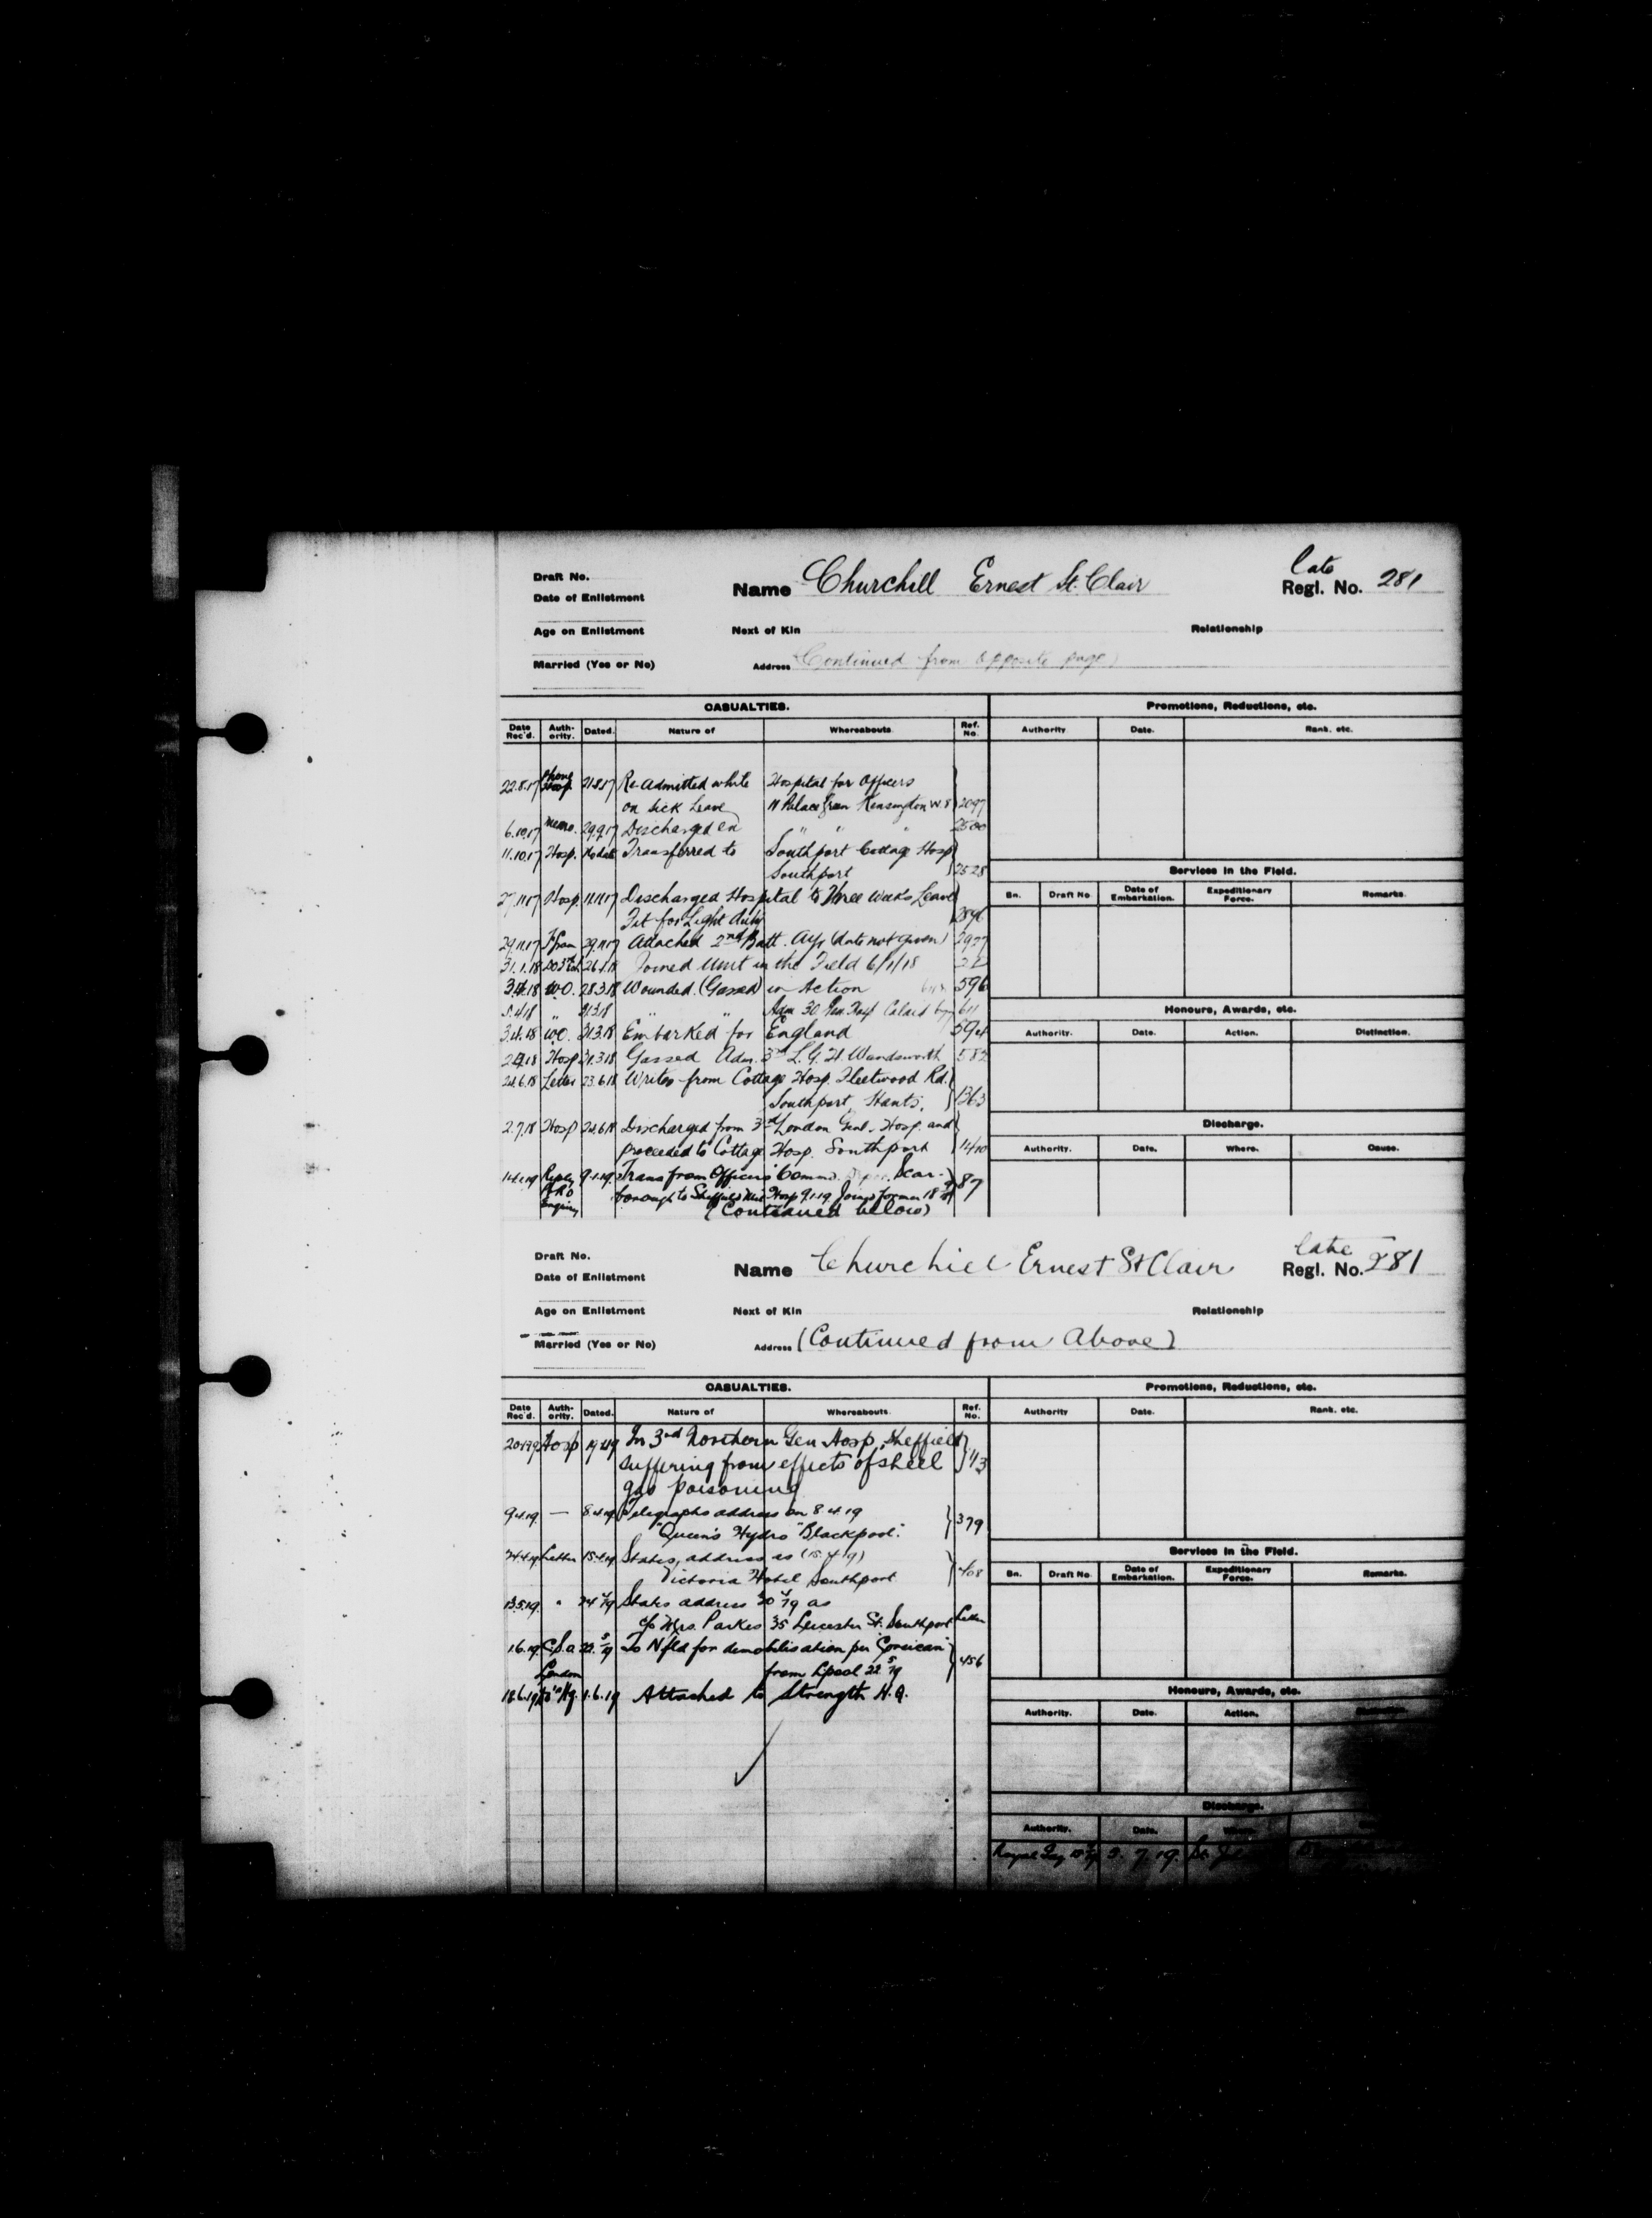 Draft No.
Name Churchill Ernest St. Clair
late
Regl. No. 281
Date of Enlistment
Age on Enlistment
Next of Kin
Relationship
Married (Yes or No)
Address (Continued from opposite page)
CASUALTIES.
Promotions, Reductions, etc.
Date Rec'd. Auth-ority. Dated. Nature of Whereabouts. Ref. No.
Authority Date. Rank, etc.
22.8.17 Phone Hosp. 21.8.17 Re-admitted while Hospital for Officers
on sick Leave 11 Palace Green Kensington W.8 2097
6.10.17 Memo. 29.9.17 Discharged " " " 2500
11.10.17 Hosp. No date Transferred to Southport Cottage Hosp
Southport 2528
27.11.17 Hosp. 11.11.17 Discharged Hospital to Three weeks Leave
Fit for Light duty 2896
29.11.17 29.11.17 Attached 2nd Batt. Ayr (date not given) 2927
31.1.18 26.1.18 Joined Unit in the Field 6/1/18 22
3.4.18 W.O. 28.3.18 Wounded (Gassed) in Action 596
5.4.18 31.3.18 " " Adm 30 Gen Hosp Calais 611
3.4.18 W.O. 31.3.18 Embarked for England 594
2.4.18 Hosp 31.3.18 Gassed Adm. 3rd L.G.H. Wandsworth 582
24.6.18 Letter 23.6.18 Writes from Cottage Hosp. Fleetwood Rd.
Southport, Hants. 1363
2.7.18 Hosp 24.6.18 Discharged from 3rd London Genl. Hosp. and
proceeded to Cottage Hosp. Southport 1410
14.1.19 Reply 9.1.19. Trans from Officers' Command Depot Scar-
Enquiry borough to Sheffield Hosp 9.1.19. 87
(Continued below)
Services in the Field.
Bn. Draft No Date of Embarkation. Expeditionary Force. Remarks.
Honours, Awards, etc.
Authority. Date. Action. Distinction.
Discharge.
Authority. Date. Where. Cause.
Draft No.
Name Churchill Ernest St Clair
late
Regl. No. 281
Date of Enlistment
Age on Enlistment
Next of Kin
Relationship
Married (Yes or No)
Address (Continued from Above)
CASUALTIES.
Promotions, Reductions, etc.
Date Rec'd. Auth-ority. Dated. Nature of Whereabouts. Ref. No.
Authority Date. Rank, etc.
20.1.19 Hosp 19.1.19 In 3rd Northern Gen Hosp, Sheffield
suffering from effects of shell 113
gas poisoning
9.4.19 — 8.4.19 Telegraphs address on 8.4.19
"Queen's Hydro" Blackpool. 379
24.4.19 Letter 15.4.19 States, address as (15.4.19)
Victoria Hotel Southport 408
13.5.19. " 24.4.19 States address 30.4.19 as
c/o Mrs. Parkes 35 Leicester St. Southport Letter
1.6.19. 22.5.19 To Nfld for demobilisation per "Corsican"
London from Lpool 22.5.19 456
1.6.19 Attached to Strength H.Q.
Services in the Field.
Bn. Draft No Date of Embarkation. Expeditionary Force. Remarks.
Honours, Awards, etc.
Authority. Date. Action.
Discharge.
Authority. Date. Where.
5. 7. 19.